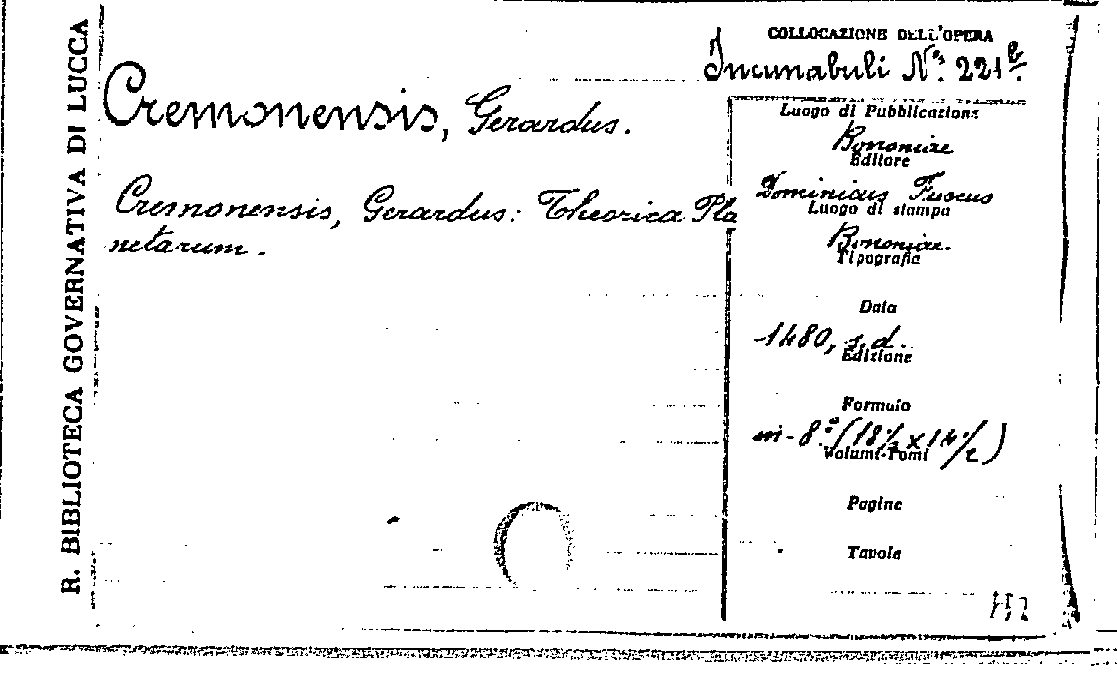 R. BIBLIOTECA GOVERNATIVA DI LUCCA
COLLOCAZIONE DELL'OPERA
Incunabuli Nº. 221 b.
Cremonensis, Gerardus.
Cremonensis, Gerardus: Theorica Pla
netarum.
Luogo di Pubblicazione
Bononiae
Editore
Dominicus Fuscus
Luogo di stampa
Bononiae.
Tipografia
Data
1480, s.d.
Edizione
Formato
in-8.º (18½ x 14½)
Volumi-Tomi
Pagine
Tavole